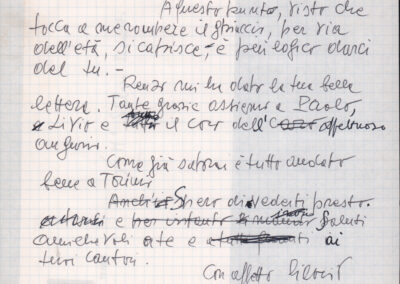 A questo punto, visto che
tocca a me rompere il ghiaccio, per via
dell'età, si capisce, - è più logico darci
del tu. -
Renzo mi ha dato la tua bella
lettera. Tante grazie assieme a Paolo,
a Livio e il coro dell' affettuoso
auguri.
Come già saprai è tutto andato
bene a Torino.
Spero di vederti presto.
e saluti
amichevoli a te e ai
tuoi cantori.
Con affetto